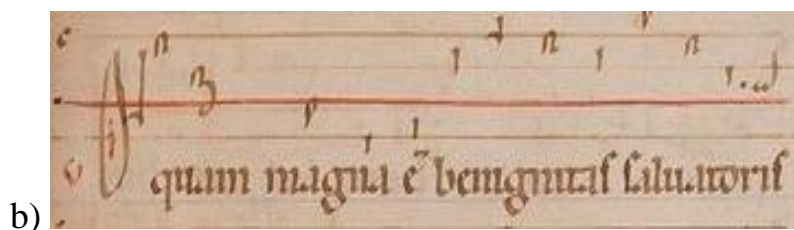 c
O quam magna ē benignitaſ ſaluatoriſ
b)